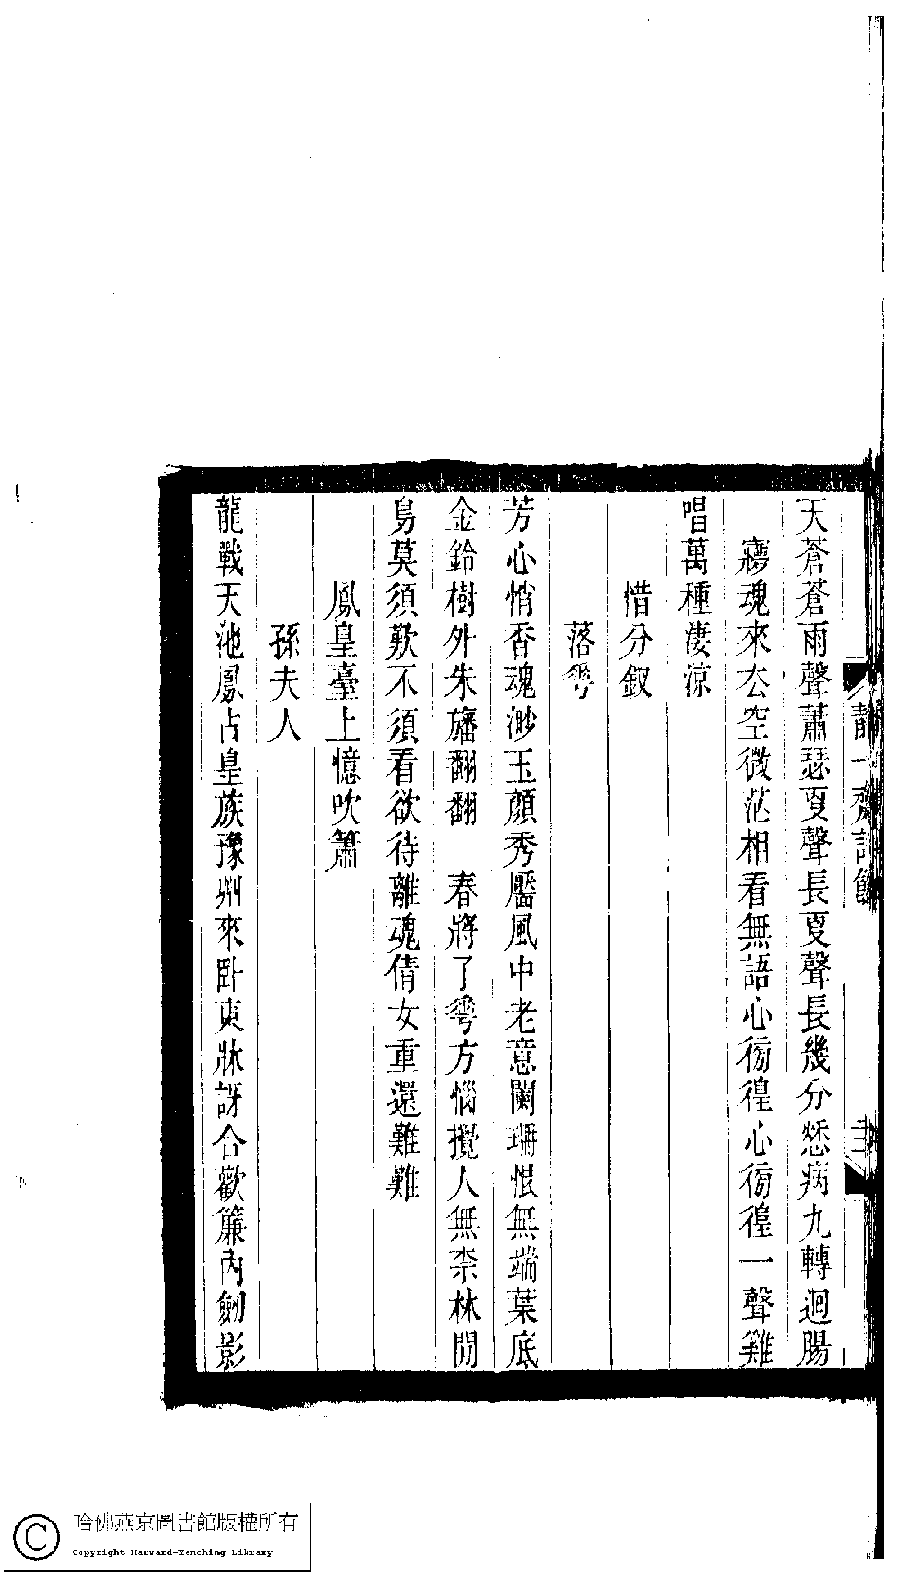 天蒼蒼雨聲蕭瑟夏聲長夏聲長幾分愁病九轉迴腸
寢魂來去空微茫相看無語心徬徨心徬徨一聲雞
唱萬種淒涼
惜分釵
落雩
芳心悄香魂渺玉顏秀靨風中老意闌珊恨無端葉底
金鈴樹外朱旛翻翻　春將了雩方惱攪人無柰林間
舄莫須歎不須看欲待離魂倩女重還難難
鳳皇臺上憶吹簫
孫夫人
龍戰天池鳳占皇族豫州來卧東牀訝合歡簾內劍影
哈佛燕京圖書館版權所有
Copyright Harvard-Yenching Library